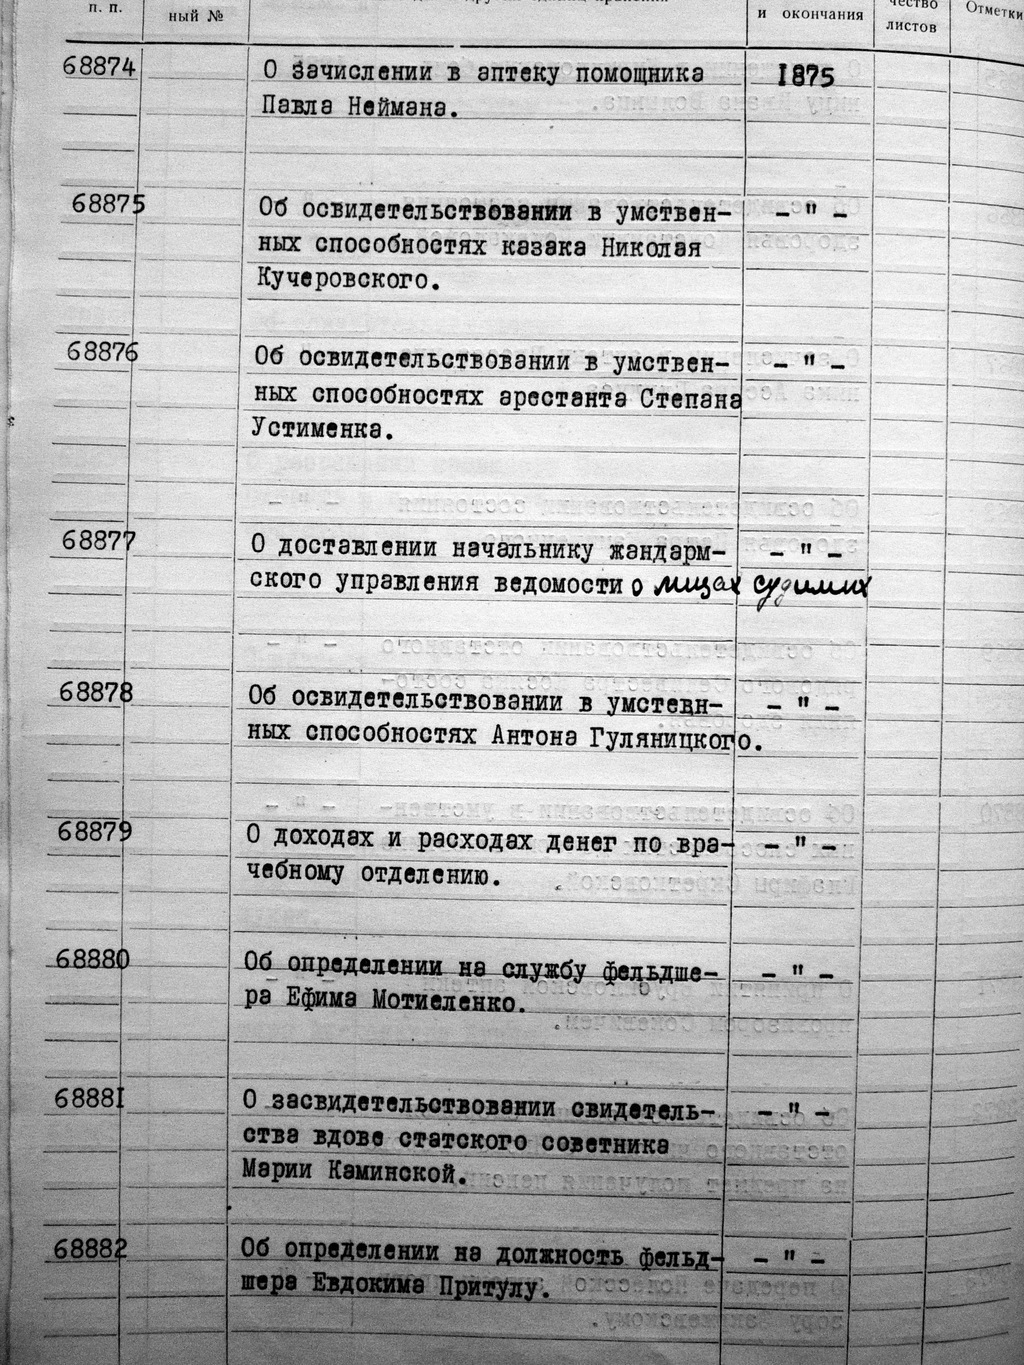 п. п.
ный №
и окончания
чество
листов
Отметки
68874
О зачислении в аптеку помощника
1875
Павла Неймана.
68875
Об освидетельствовании в умствен-
- " -
ных способностях казака Николая
Кучеровского.
68876
Об освидетельствовании в умствен-
- " -
ных способностях арестанта Степана
Устименка.
68877
О доставлении начальнику жандарм-
- " -
ского управления ведомости о лицах судимих
68878
Об освидетельствовании в умстевн-
- " -
ных способностях Антона Гуляницкого.
68879
О доходах и расходах денег по вра-
- " -
чебному отделению.
68880
Об определении на службу фельдше-
- " -
ра Ефима Мотиеленко.
68881
О засвидетельствовании свидетель-
- " -
ства вдове статского советника
Марии Каминской.
68882
Об определении на должность фельд-
- " -
шера Евдокима Притулу.